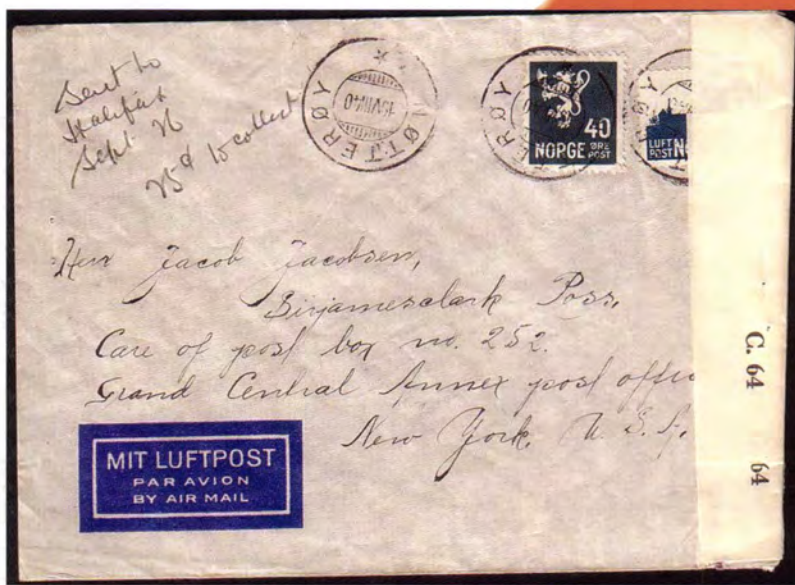 Sent to
Halifax
Sept 26
25¢ to collect
NØTTERØY
15 VIII 40
NØTTERØY
40
NORGE ØRE
POST
LUFT
POST N
RØY
Herr Jacob Jacobsen,
Sirjamesclark Poss,
Care of post box no. 252.
Grand Central Annex post offi
New York. U. S. A.
MIT LUFTPOST
PAR AVION
BY AIR MAIL
C. 64
64